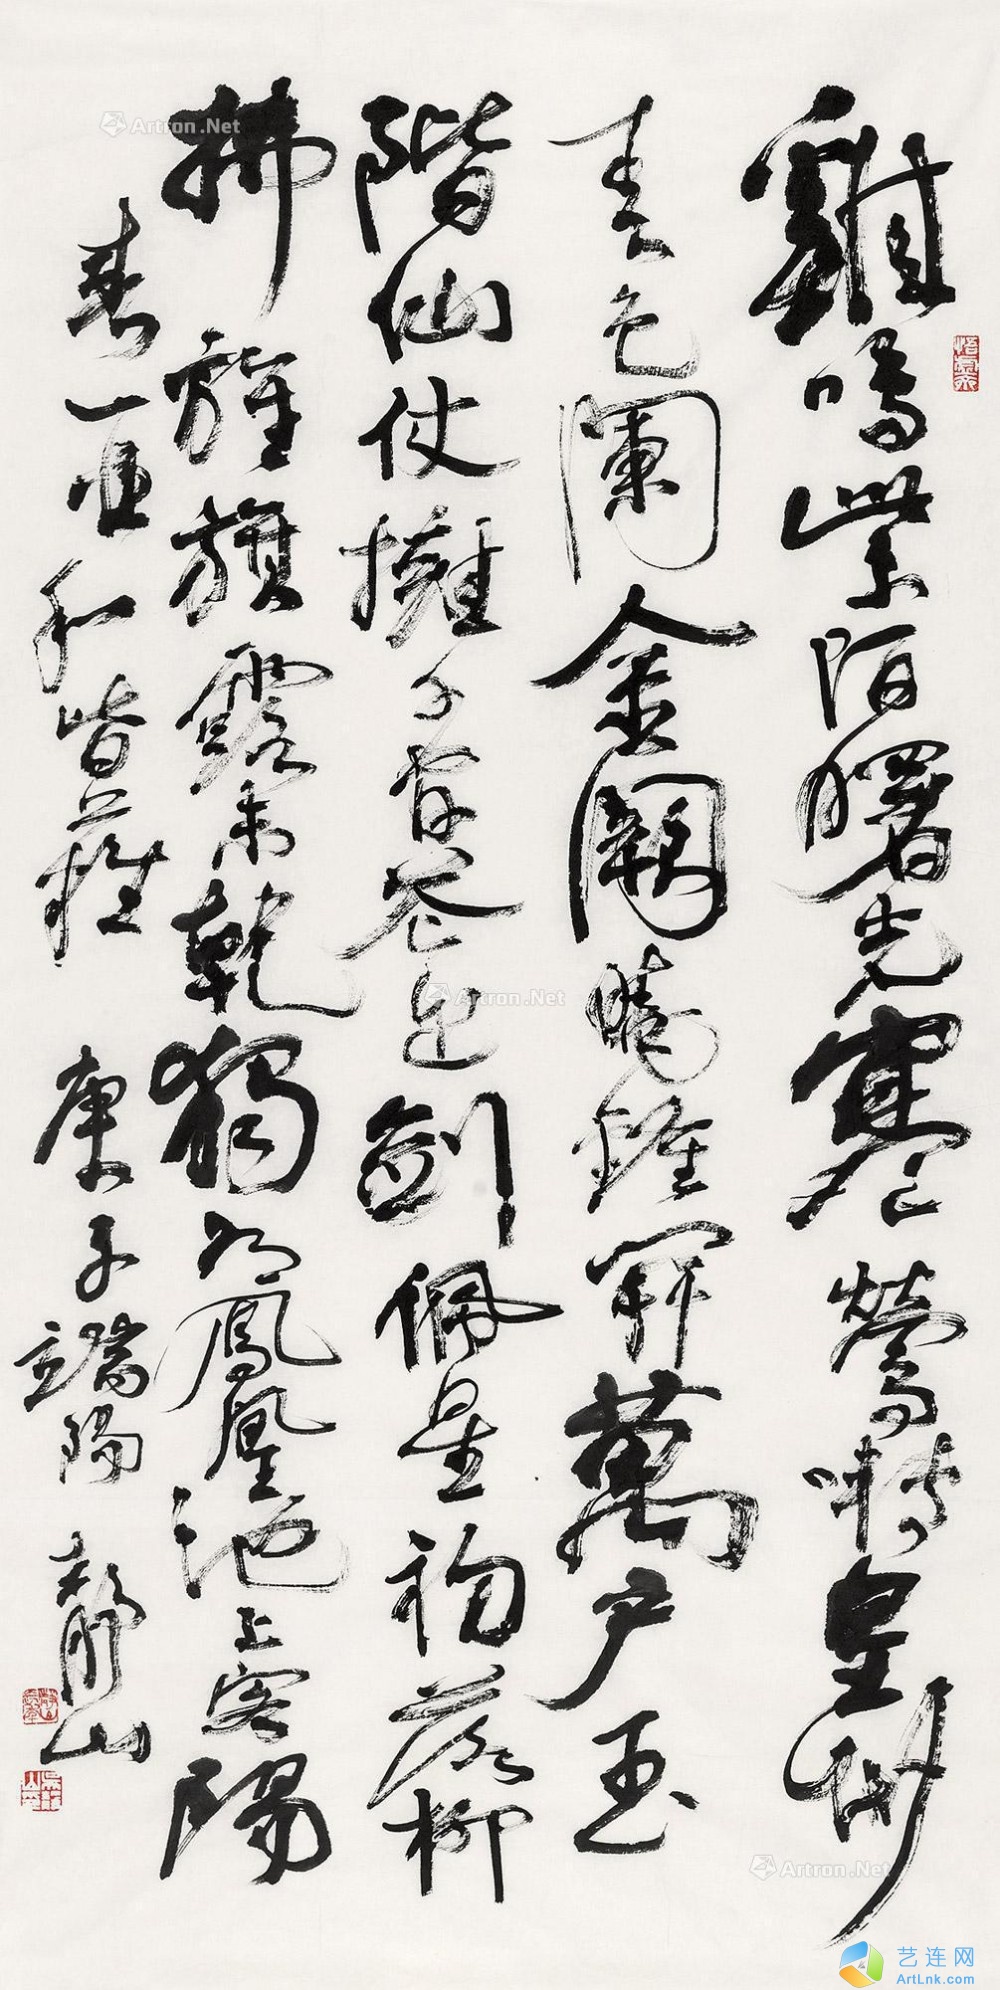 雞鳴紫陌曙光寒鶯囀皇州
春色闌金闕曉鐘開萬戶玉
階仙仗擁千官花迎劍佩星初落柳
拂旌旗露未乾獨有鳳凰池上客陽
春一曲和皆難 庚子端陽 靜山
Artron.Net
Artron.Net
Artron.Net
艺连网
ArtLnk.com